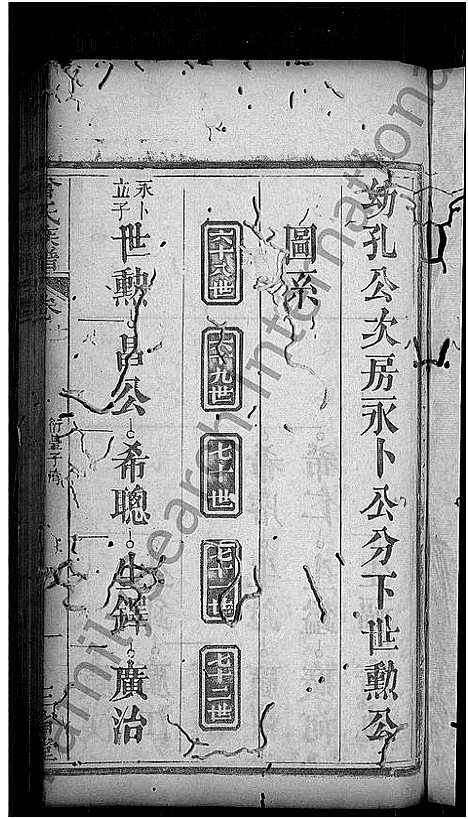 幼孔公次房永卜公分下世勲公
圖系
六十八世
六十九世
七十世
七十一世
七十二世
永卜
立子
世勲 昌公 希聰 生鐸 廣治
familysearch international